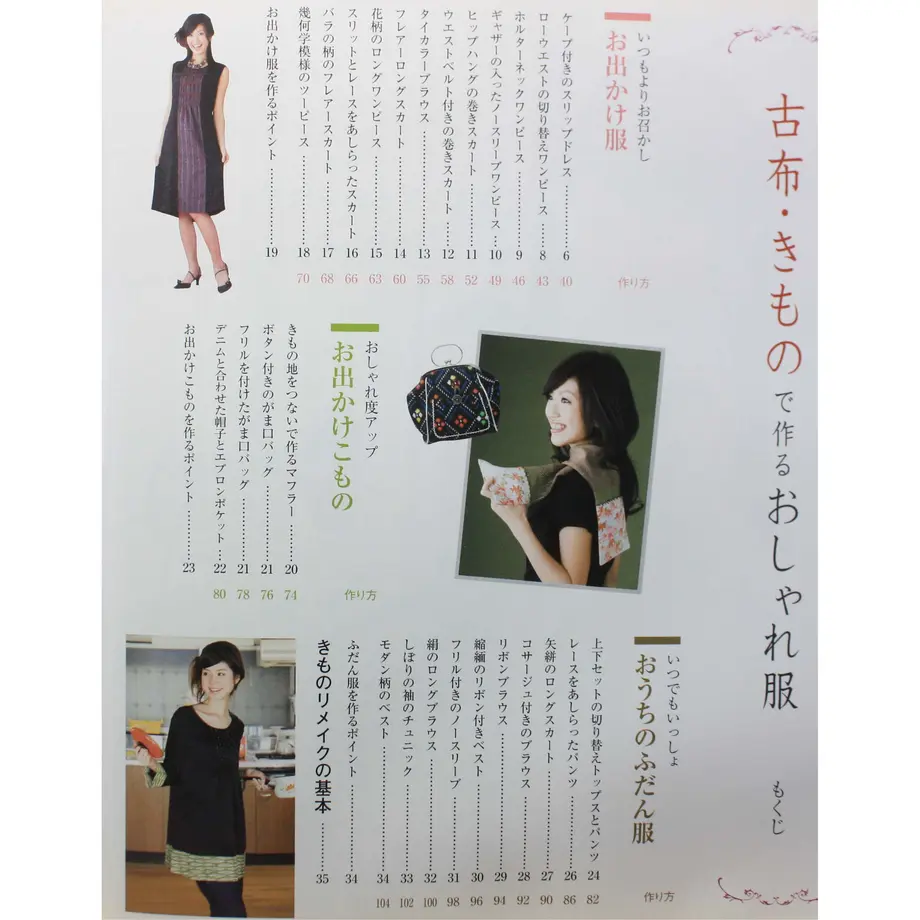 古布・きもので作るおしゃれ服
もくじ
いつもよりお召かし
お出かけ服
作り方
ケープ付きのスリップドレス……6 40
ローウエストの切り替えワンピース……8 43
ホルターネックワンピース……9 46
ギャザーの入ったノースリーブワンピース……10 49
ヒップハングの巻きスカート……11 52
ウエストベルト付きの巻きスカート……12 58
タイカラーブラウス……13 55
フレアーロングスカート……14 60
花柄のロングワンピース……15 63
スリットとレースをあしらったスカート……16 66
バラの柄のフレアースカート……17 68
幾何学模様のツーピース……18 70
お出かけ服を作るポイント……19
おしゃれ度アップ
お出かけこもの
作り方
きもの地をつないで作るマフラー……20 74
ボタン付きのがま口バッグ……21 76
フリルを付けたがま口バッグ……21 78
デニムと合わせた帽子とエプロンポケット……22 80
お出かけこものを作るポイント……23
いつでもいっしょ
おうちのふだん服
作り方
上下セットの切り替えトップスとパンツ……24 82
レースをあしらったパンツ……26 86
矢絣のロングスカート……27 90
コサージュ付きのブラウス……28 92
リボンブラウス……29 94
縮緬のリボン付きベスト……30 96
フリル付きのノースリーブ……31 98
絹のロングブラウス……32 100
しぼりの袖のチュニック……33 102
モダン柄のベスト……34 104
ふだん服を作るポイント……34
きものリメイクの基本……35